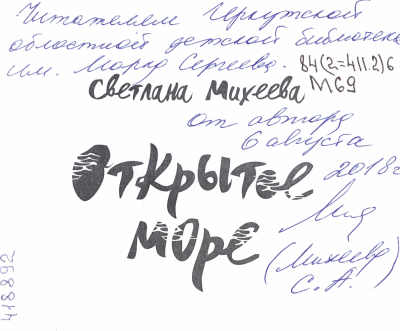 Читателям Иркутской
областной детской библиотеки
им. Марка Сергеева.
84(2=411.2)6
М69
Светлана Михеева
От автора
6 августа
2018г
Открытое
море
(Михеева
С.А.)
418892